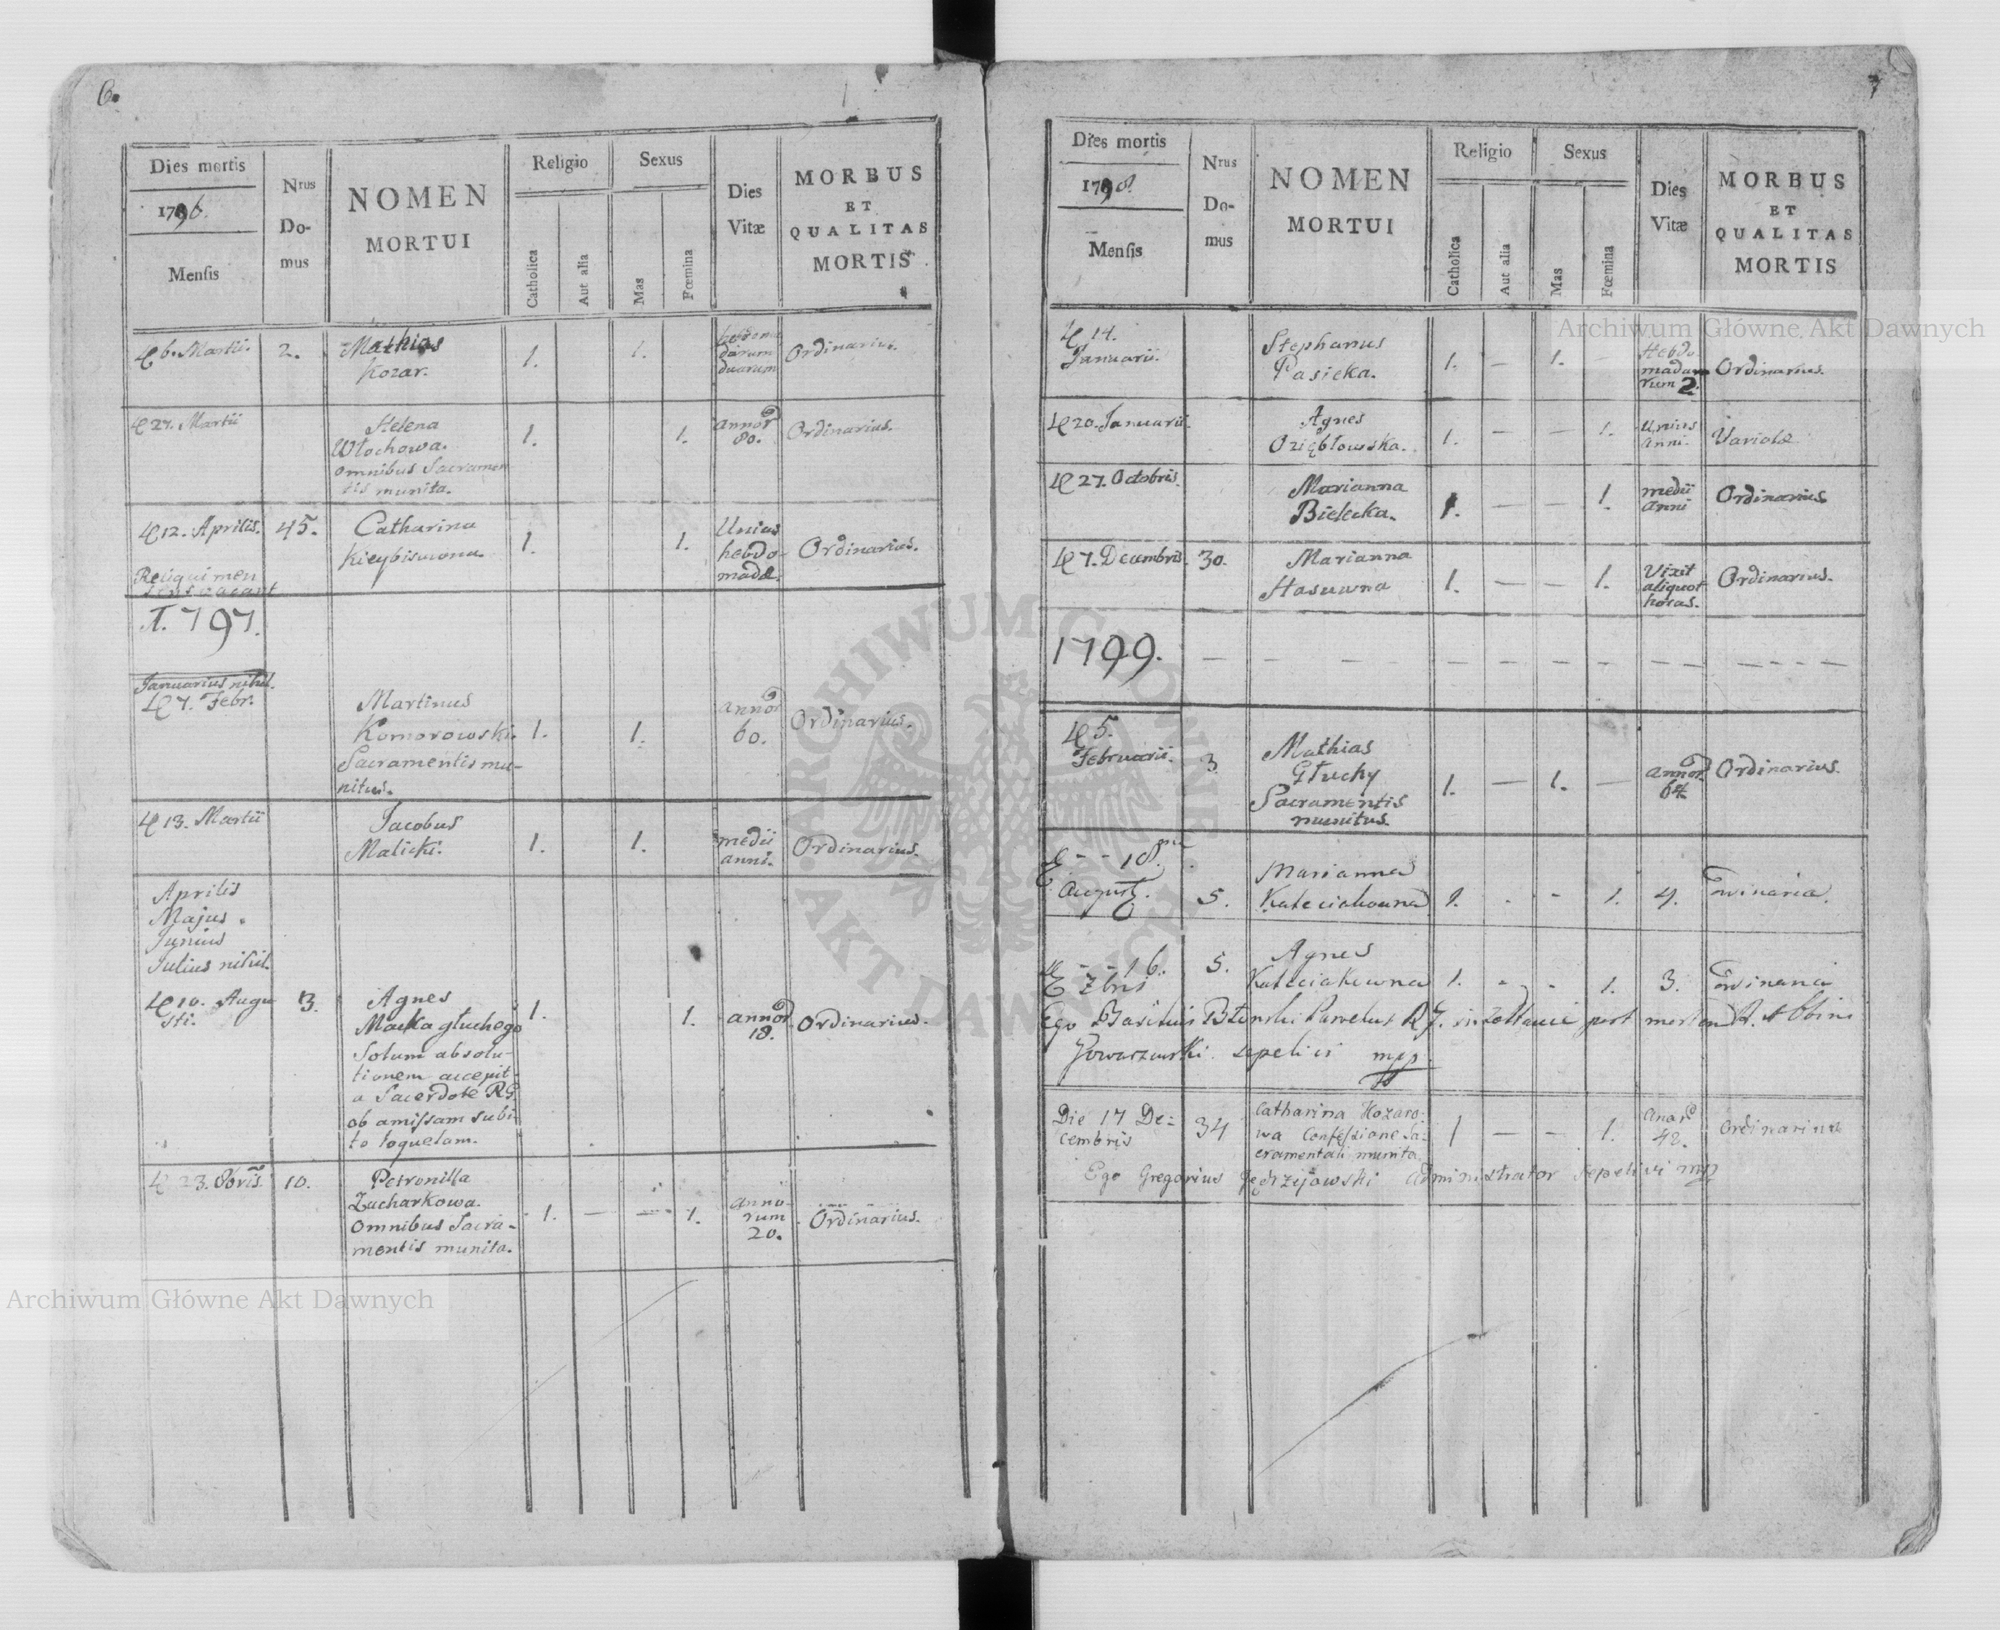 6.
Dies mortis
1796.
Mensis
Nrus
Do-
mus
NOMEN
MORTUI
Religio
Catholica
Aut alia
Sexus
Mas
Fœmina
Dies
Vitæ
MORBUS
ET
QUALITAS
MORTIS
6. Martii.
2.
Mathias
Kozar.
1.
1.
hebdoma
darum
duarum
Ordinarius.
27. Martii
Helena
Włochowa.
omnibus Sacramen
tis munita.
1.
1.
annor
80.
Ordinarius.
12. Aprilis.
45.
Catharina
1.
1.
Unius
hebdo-
madæ.
Ordinarius.
Reliqui men
ses vacant
1797.
Januarius nihil.
7. Febr.
Martinus
Komorowski.
Sacramentis mu-
nitus.
1.
1.
annor
60.
Ordinarius.
13. Martii
Jacobus
Malicki.
1.
1.
medii
anni.
Ordinarius.
Aprilis
Majus
Junius
Julius nihil.
10. Augu
sti.
3.
Agnes
Maćka głuchego
Solum absolu-
tionem accepit
a Sacerdote RG
ob amissam subi-
to loquelam.
1.
1.
annor
18.
Ordinarius.
23. 8bris.
10.
Petronilla
Zacharkowa.
Omnibus Sacra-
mentis munita.
1.
1.
anno-
rum
20.
Ordinarius.
7
Dies mortis
1798.
Mensis
Nrus
Do-
mus
NOMEN
MORTUI
Religio
Catholica
Aut alia
Sexus
Mas
Fœmina
Dies
Vitæ
MORBUS
ET
QUALITAS
MORTIS
14.
Januarii.
Stephanus
Pasieka.
1. — 1. —
Hebdo
mada
rum 2.
Ordinarius.
20. Januarii.
Agnes
Oziębłowska.
1. — — 1.
Unius
anni.
Variolæ
27. Octobris.
Marianna
Bielecka.
1. — — 1.
medii
anni
Ordinarius
7. Decembris.
30.
Marianna
1. — — 1.
Vixit
aliquot
horas.
Ordinarius.
1799.
5.
Februarii.
3
Mathias
Głuchy
Sacramentis
munitus.
1. — 1. —
annor
64.
Ordinarius.
18.
August.
5.
Marianna
1. - - 1.
4.
16.
5.
Agnes
1. - - 1.
3.
Ego post mortem
sepelivi mpp.
Die 17 De-
cembris
34
Catharina Kozaro-
wa Confessione Sa-
cramentali munita
1 — — 1.
42.
Ordinarius
Ego Gregorius Jędrzejowski Administrator sepelivi mpp
Archiwum Główne Akt Dawnych
Archiwum Główne Akt Dawnych
ARCHIWUM GŁÓWNE
AKT DAWNYCH